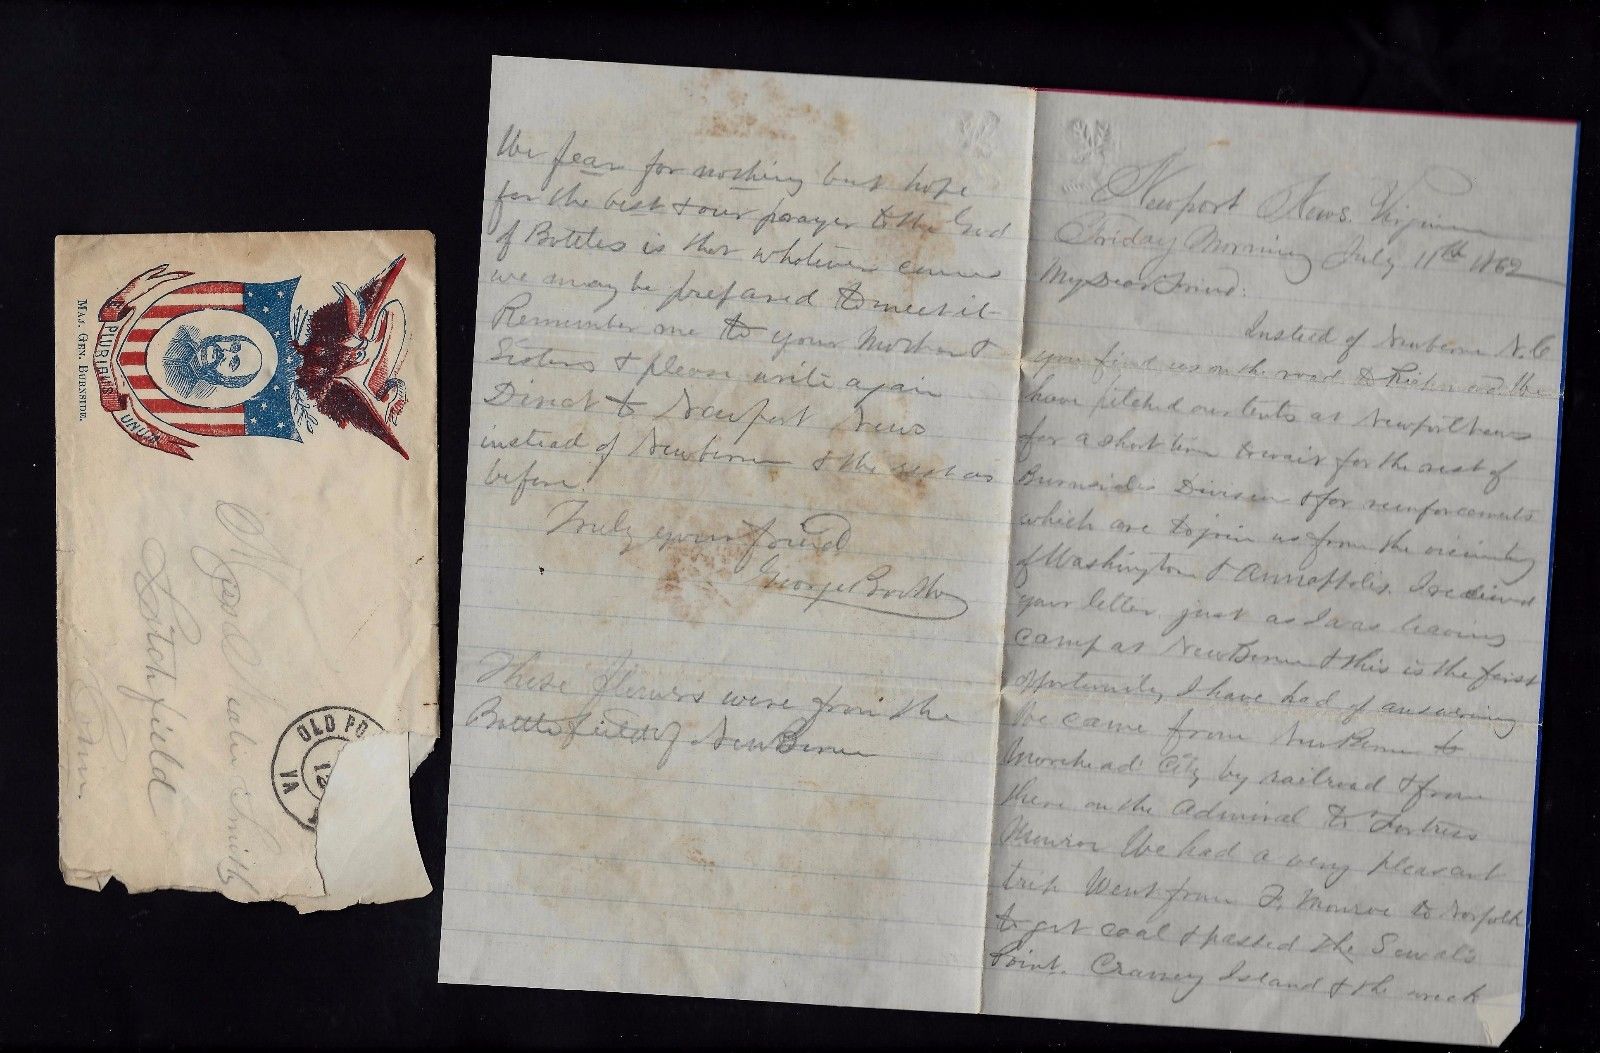 E PLURIBUS UNUM
MAJ. GEN. BURNSIDE.
OLD PO
12
VA
Smith
Litchfield
Conn.
Newport News. Virginia
Friday Morning July 11th 1862
My Dear Friend:
Instead of Newberne N.C
you find us on the road to Richmond We
have pitched our tents at Newport News
for a short time to wait for the rest of
Burnsides Division & for reinforcements
which are to join us from the vicinity
of Washington & Annapolis. I received
your letter just as I was leaving
camp at NewBerne & this is the first
opportunity I have had of answering
We came from NewBerne to
Morehead City by railroad & from
there on the Admiral to Fortress
Monroe We had a very pleasant
trip Went from F. Monroe to Norfolk
to get coal & passed the Sewal's
Point. Craney Island & the wreck
We fear for nothing but hope
for the best & our prayer to the God
of Battles is that whatever comes
we may be prepared to meet it-
Remember me to your Mother &
Sisters & please write again
Direct to Newport News
instead of Newberne & the rest as
before.
Truly your friend
George
These flowers were from the
Battlefield of NewBerne